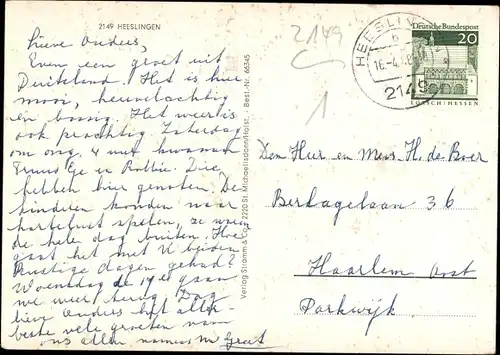 2149 HEESLINGEN
Lieve Ouders,
Even een groet uit
Duitsland. Het is hier
mooi, heuvelachtig
en bossig. Het weer is
ook prachtig Zaterdag
om ong. 4 uur kwamen
en Robbie. Die
hebben hier genoten. De
kinderen konden naar
hartelust spelen, ze waren
de hele dag buiten. Hoe
gaat het met U beiden
Rustige dagen gehad?
Woensdag de 19e gaan
we weer terug. Dag
lieve Ouders heb aller-
beste vele groeten van
ons allen namens W Greet
Verlag Stramm & Co., 2220 St. Michaelisdonn/Holst. Best.-Nr. 66345
2149
1
HEESLINGEN
b
16.-4.
2149
Deutsche Bundespost
20
LORSCH/HESSEN
Den Heer en Mevr. H. de Boer
Berlagelaan 36
Haarlem Oost
Parkwijk.